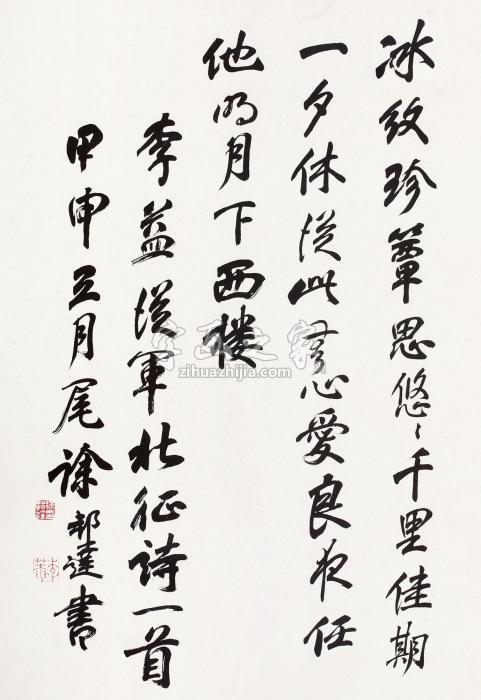 冰紋珍簟思悠〻千里佳期
一夕休從此無心愛良夜任
他明月下西樓
李益從軍北征詩一首
甲申三月尾徐邦達書
字画之家
zihuazhijia.com